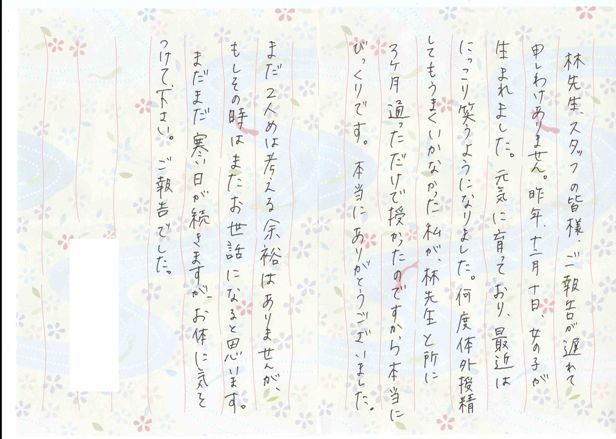 林先生、スタッフの皆様、ご報告が遅れて
申しわけありません。昨年、十二月十日、女の子が
生まれました。元気に育っており、最近は
にっこり笑うようになりました。何度体外授精
してもうまくいかなかった私が、林先生と所に
3ヶ月通っただけで授かったのですから本当に
びっくりです。本当にありがとうございました。
まだ2人めは考える余裕はありませんが、
もしその時はまたお世話になると思います。
まだまだ寒い日が続きますが、お体に気を
つけて下さい。ご報告でした。